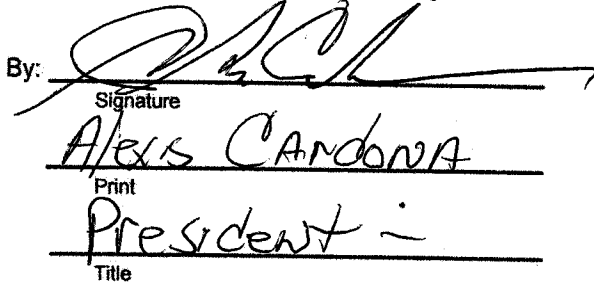 By:
Signature
Alexis CArdonA
Print
President -
Title